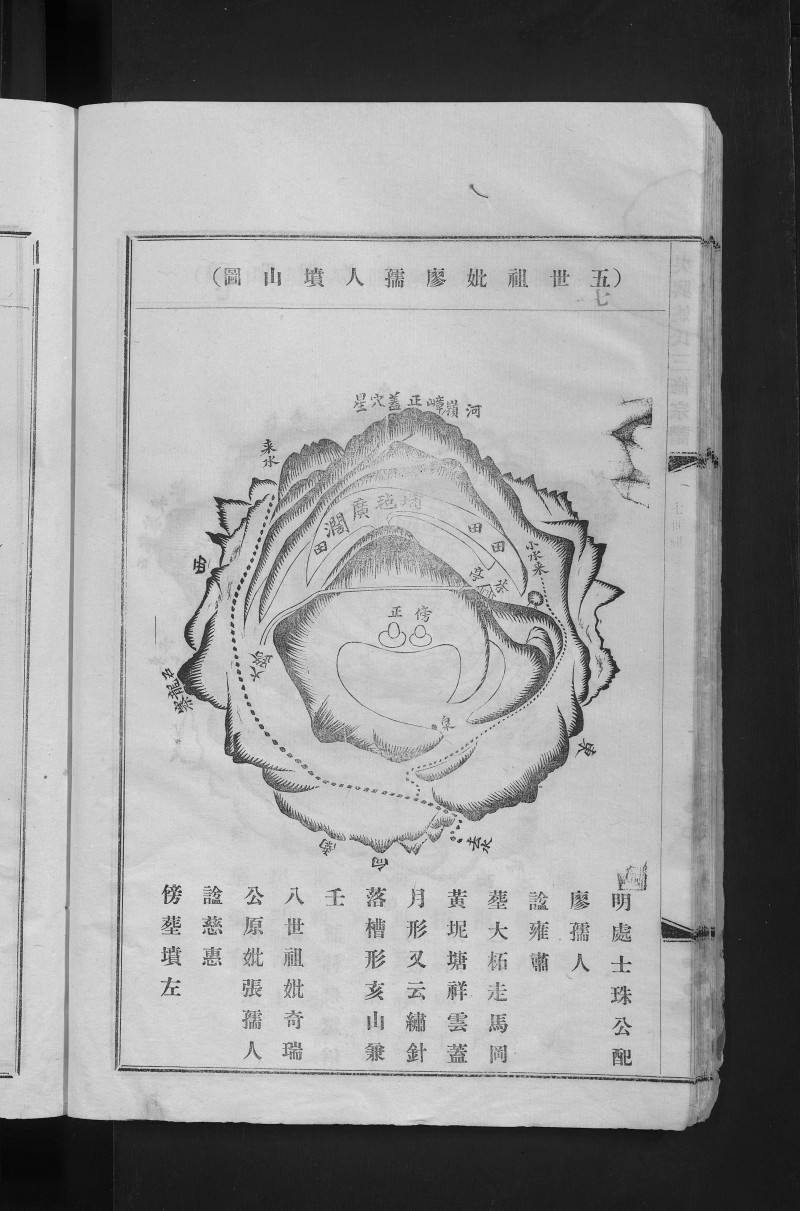 (五世祖妣廖孺人墳山圖)
河嶺嶂正蓋穴星
来水
塘乸廣濶
田
田
田
小水来
正
傍
大路
泉
東
南
向
去水
明處士珠公配
廖孺人
諡雍肅
塟大柘走馬岡
黃坭塘祥雲蓋
月形又云繡針
落槽形亥山兼
壬
八世祖妣奇瑞
公原妣張孺人
諡慈惠
傍塟墳左